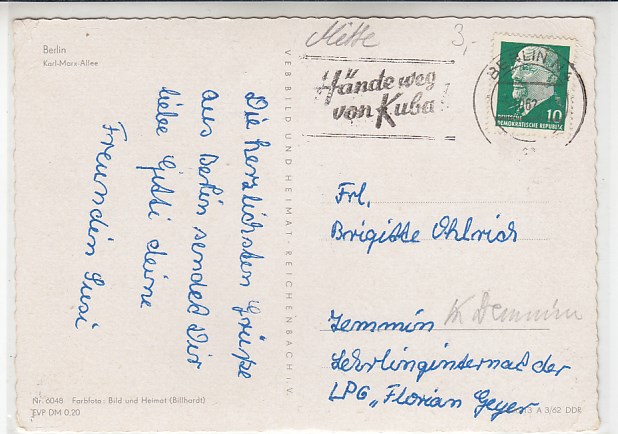 Berlin
Karl-Marx-Allee
Die herzlichsten Grüße
aus Berlin sendet Dir
liebe Gitti deine
Freundin Susi
Nr. 6048 Farbfoto: Bild und Heimat (Billhardt)
EVP DM 0,20
VEB BILD UND HEIMAT · REICHENBACH I. V.
Mitte
3,-
Hände weg
von Kuba
BERLIN N4
62
10
DEUTSCHE
DEMOKRATISCHE REPUBLIK
Frl.
Brigitte Ohlrich
Zemmin Kr Demmin
Lehrlingsinternat der
LPG „Florian Geyer
A 3/62 DDR